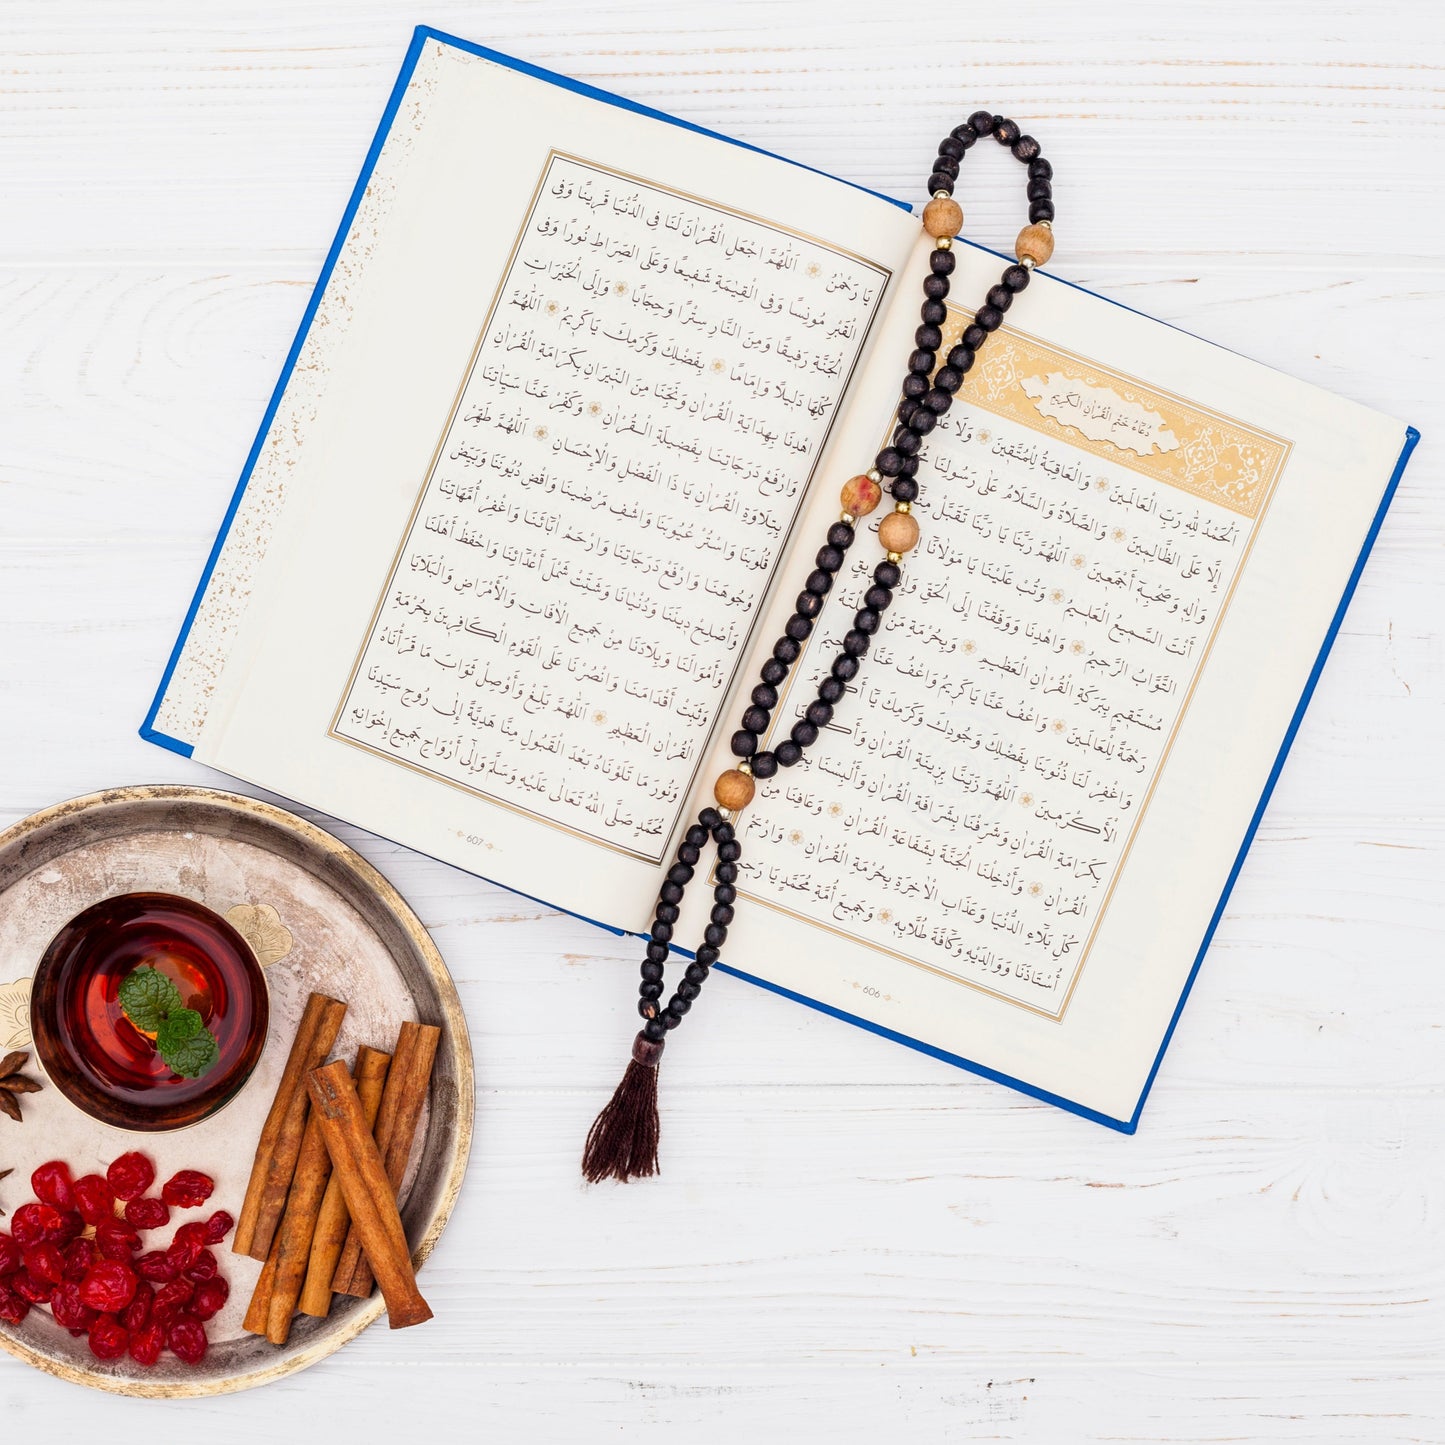 دُعَاءُ خَتْمِ الْقُرْاٰنِ الْكَرِيمِ
اَلْحَمْدُ لِلّٰهِ رَبِّ الْعَالَمِينَ وَالْعَاقِبَةُ لِلْمُتَّقِينَ وَلَا
إِلَّا عَلَى الظَّالِمِينَ وَالصَّلَاةُ وَالسَّلَامُ عَلَى رَسُولِنَا
وَاٰلِهِ وَصَحْبِهِ أَجْمَعِينَ اَللّٰهُمَّ رَبَّنَا يَا رَبَّنَا تَقَبَّلْ
أَنْتَ السَّمِيعُ الْعَلِيمُ وَتُبْ عَلَيْنَا يَا مَوْلَانَا
التَّوَّابُ الرَّحِيمُ وَاهْدِنَا وَوَفِّقْنَا إِلَى الْحَقِّ
مُسْتَقِيمٍ بِبَرَكَةِ الْقُرْاٰنِ الْعَظِيمِ وَبِحُرْمَةِ مَنْ
رَحْمَةً لِلْعَالَمِينَ وَاعْفُ عَنَّا يَا كَرِيمُ وَاعْفُ عَنَّا
وَاغْفِرْ لَنَا ذُنُوبَنَا بِفَضْلِكَ وَجُودِكَ وَكَرَمِكَ يَا
الْأَكْرَمِينَ اَللّٰهُمَّ زَيِّنَّا بِزِينَةِ الْقُرْاٰنِ
بِكَرَامَةِ الْقُرْاٰنِ وَشَرِّفْنَا بِشَرَافَةِ الْقُرْاٰنِ وَأَلْبِسْنَا
الْقُرْاٰنِ وَأَدْخِلْنَا الْجَنَّةَ بِشَفَاعَةِ الْقُرْاٰنِ وَعَافِنَا مِنْ
كُلِّ بَلَاءِ الدُّنْيَا وَعَذَابِ الْاٰخِرَةِ بِحُرْمَةِ الْقُرْاٰنِ وَارْحَمْ
أُسْتَاذَنَا وَوَالِدَيْهِ وَكَافَّةَ طُلَّابِهِ وَجَمِيعَ أُمَّةِ مُحَمَّدٍ يَا
606
يَا رَحْمٰنُ اَللّٰهُمَّ اجْعَلِ الْقُرْاٰنَ لَنَا فِى الدُّنْيَا قَرِينًا وَفِى
الْقَبْرِ مُونِسًا وَفِى الْقِيٰمَةِ شَفِيعًا وَعَلَى الصِّرَاطِ نُورًا وَفِى
الْجَنَّةِ رَفِيقًا وَمِنَ النَّارِ سِتْرًا وَحِجَابًا وَإِلَى الْخَيْرَاتِ
كُلِّهَا دَلِيلًا وَإِمَامًا بِفَضْلِكَ وَكَرَمِكَ يَا كَرِيمُ اَللّٰهُمَّ
اهْدِنَا بِهِدَايَةِ الْقُرْاٰنِ وَنَجِّنَا مِنَ النِّيرَانِ بِكَرَامَةِ الْقُرْاٰنِ
وَارْفَعْ دَرَجَاتِنَا بِفَضِيلَةِ الْقُرْاٰنِ وَكَفِّرْ عَنَّا سَيِّاٰتِنَا
بِتِلَاوَةِ الْقُرْاٰنِ يَا ذَا الْفَضْلِ وَالْإِحْسَانِ اَللّٰهُمَّ طَهِّرْ
قُلُوبَنَا وَاسْتُرْ عُيُوبَنَا وَاشْفِ مَرْضٰينَا وَاقْضِ دُيُونَنَا وَبَيِّضْ
وُجُوهَنَا وَارْفَعْ دَرَجَاتِنَا وَارْحَمْ اٰبَائَنَا وَاغْفِرْ أُمَّهَاتِنَا
وَأَصْلِحْ دِينَنَا وَدُنْيَانَا وَشَتِّتْ شَمْلَ أَعْدَائِنَا وَاحْفَظْ أَهْلَنَا
وَأَمْوَالَنَا وَبِلَادَنَا مِنْ جَمِيعِ الْاٰفَاتِ وَالْأَمْرَاضِ وَالْبَلَايَا
وَثَبِّتْ أَقْدَامَنَا وَانْصُرْنَا عَلَى الْقَوْمِ الْكَافِرِينَ بِحُرْمَةِ
الْقُرْاٰنِ الْعَظِيمِ اَللّٰهُمَّ بَلِّغْ وَأَوْصِلْ ثَوَابَ مَا قَرَأْنَاهُ
وَنُورَ مَا تَلَوْنَاهُ بَعْدَ الْقَبُولِ مِنَّا هَدِيَّةً إِلٰى رُوحِ سَيِّدِنَا
مُحَمَّدٍ صَلَّى اللّٰهُ تَعَالٰى عَلَيْهِ وَسَلَّمَ وَإِلٰى أَرْوَاحِ جَمِيعِ إِخْوَانِهِ
607